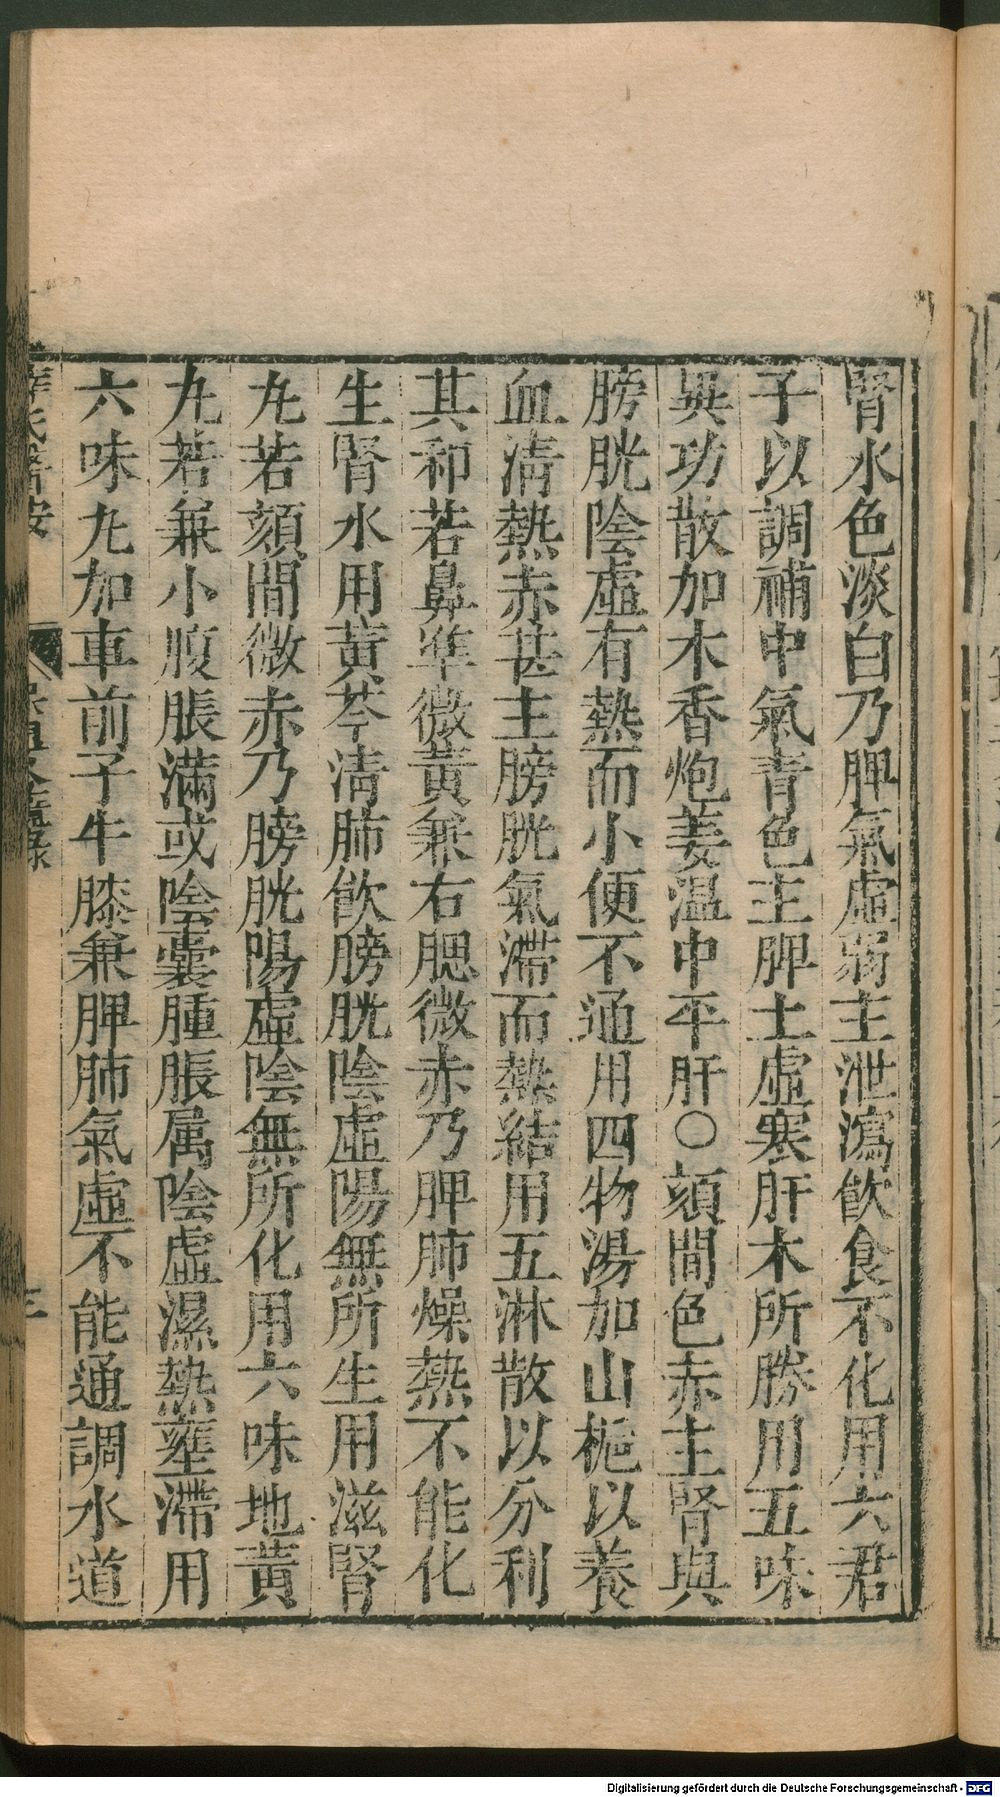 腎水色淡白乃脾氣虛弱主泄瀉飲食不化用六君
子以調補中氣青色主脾土虛寒肝木所勝用五味
異功散加木香炮姜温中平肝○頦間色赤主腎與
膀胱陰虛有熱而小便不通用四物湯加山梔以養
血清熱赤甚主膀胱氣滯而熱結用五淋散以分利
其和若鼻準微黃兼右腮微赤乃脾肺燥熱不能化
生腎水用黃芩清肺飲膀胱陰虛陽無所生用滋腎
丸若頦間微赤乃膀胱陽虛陰無所化用六味地黃
丸若兼小腹脹滿或陰囊腫脹属陰虛濕熱壅滯用
六味丸加車前子牛膝兼脾肺氣虛不能通調水道
薛氏醫按
三
Digitalisierung gefördert durch die Deutsche Forschungsgemeinschaft - DFG